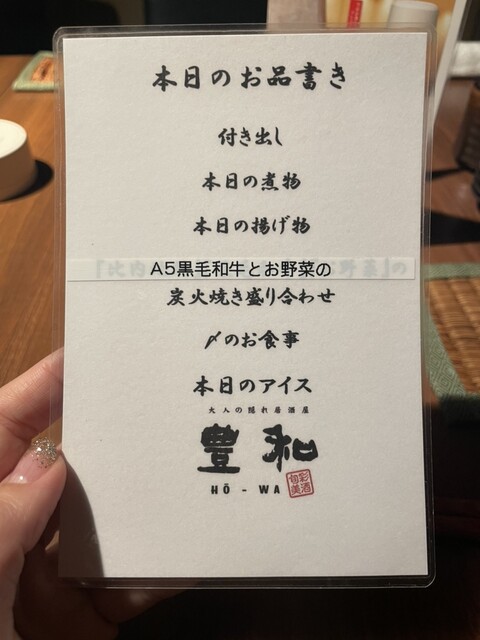 本日のお品書き
付き出し
本日の煮物
本日の揚げ物
A5黒毛和牛とお野菜の
炭火焼き盛り合わせ
〆のお食事
本日のアイス
大人の隠れ居酒屋
豊和
HŌ - WA